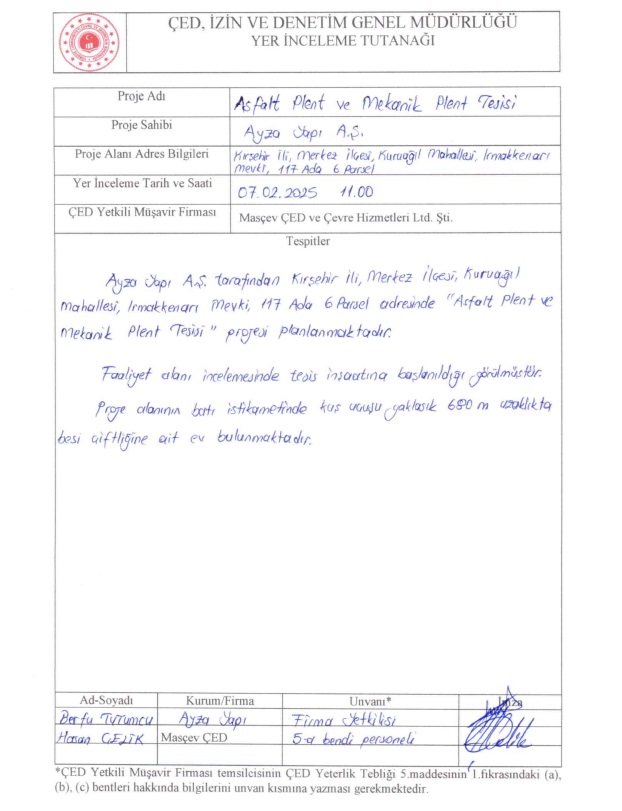 ÇED, İZİN VE DENETİM GENEL MÜDÜRLÜĞÜ
YER İNCELEME TUTANAĞI
Proje Adı
Asfalt Plent ve Mekanik Plent Tesisi
Proje Sahibi
Ayza Yapı A.Ş.
Proje Alanı Adres Bilgileri
Kırşehir İli, Merkez İlçesi, Kuruağıl Mahallesi, Irmakkenarı
Mevki, 117 Ada 6 Parsel
Yer İnceleme Tarih ve Saati
07.02.2025 11.00
ÇED Yetkili Müşavir Firması
Masçev ÇED ve Çevre Hizmetleri Ltd. Şti.
Tespitler
Ayza Yapı A.Ş. tarafından Kırşehir İli, Merkez İlçesi, Kuruağıl
Mahallesi, Irmakkenarı Mevki, 117 Ada 6 Parsel adresinde "Asfalt Plent ve
Mekanik Plent Tesisi" projesi planlanmaktadır.
Faaliyet alanı incelemesinde tesis inşaatına başlanıldığı görülmüştür.
Proje alanının batı istikametinde kuş uçuşu yaklaşık 680 m uzaklıkta
besi çiftliğine ait ev bulunmaktadır.
Ad-Soyadı Kurum/Firma Unvanı* İmza
Berfu TUTUMCU Ayza Yapı Firma Yetkilisi
Hasan ÇELİK Masçev ÇED 5-a bendi personeli
*ÇED Yetkili Müşavir Firması temsilcisinin ÇED Yeterlik Tebliği 5.maddesinin 1.fıkrasındaki (a),
(b), (c) bentleri hakkında bilgilerini unvan kısmına yazması gerekmektedir.